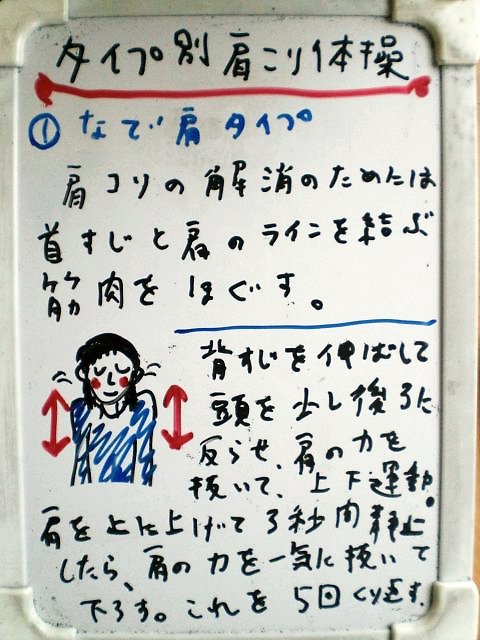 タイプ別肩こり体操
① なで肩タイプ
肩コリの解消のためには
首すじと肩のラインを結ぶ
筋肉をほぐす。
背すじを伸ばして
頭を少し後ろに
反らせ、肩の力を
抜いて、上下運動。
肩を上に上げて3秒間静止
したら、肩の力を一気に抜いて
下ろす。これを5回くり返す。